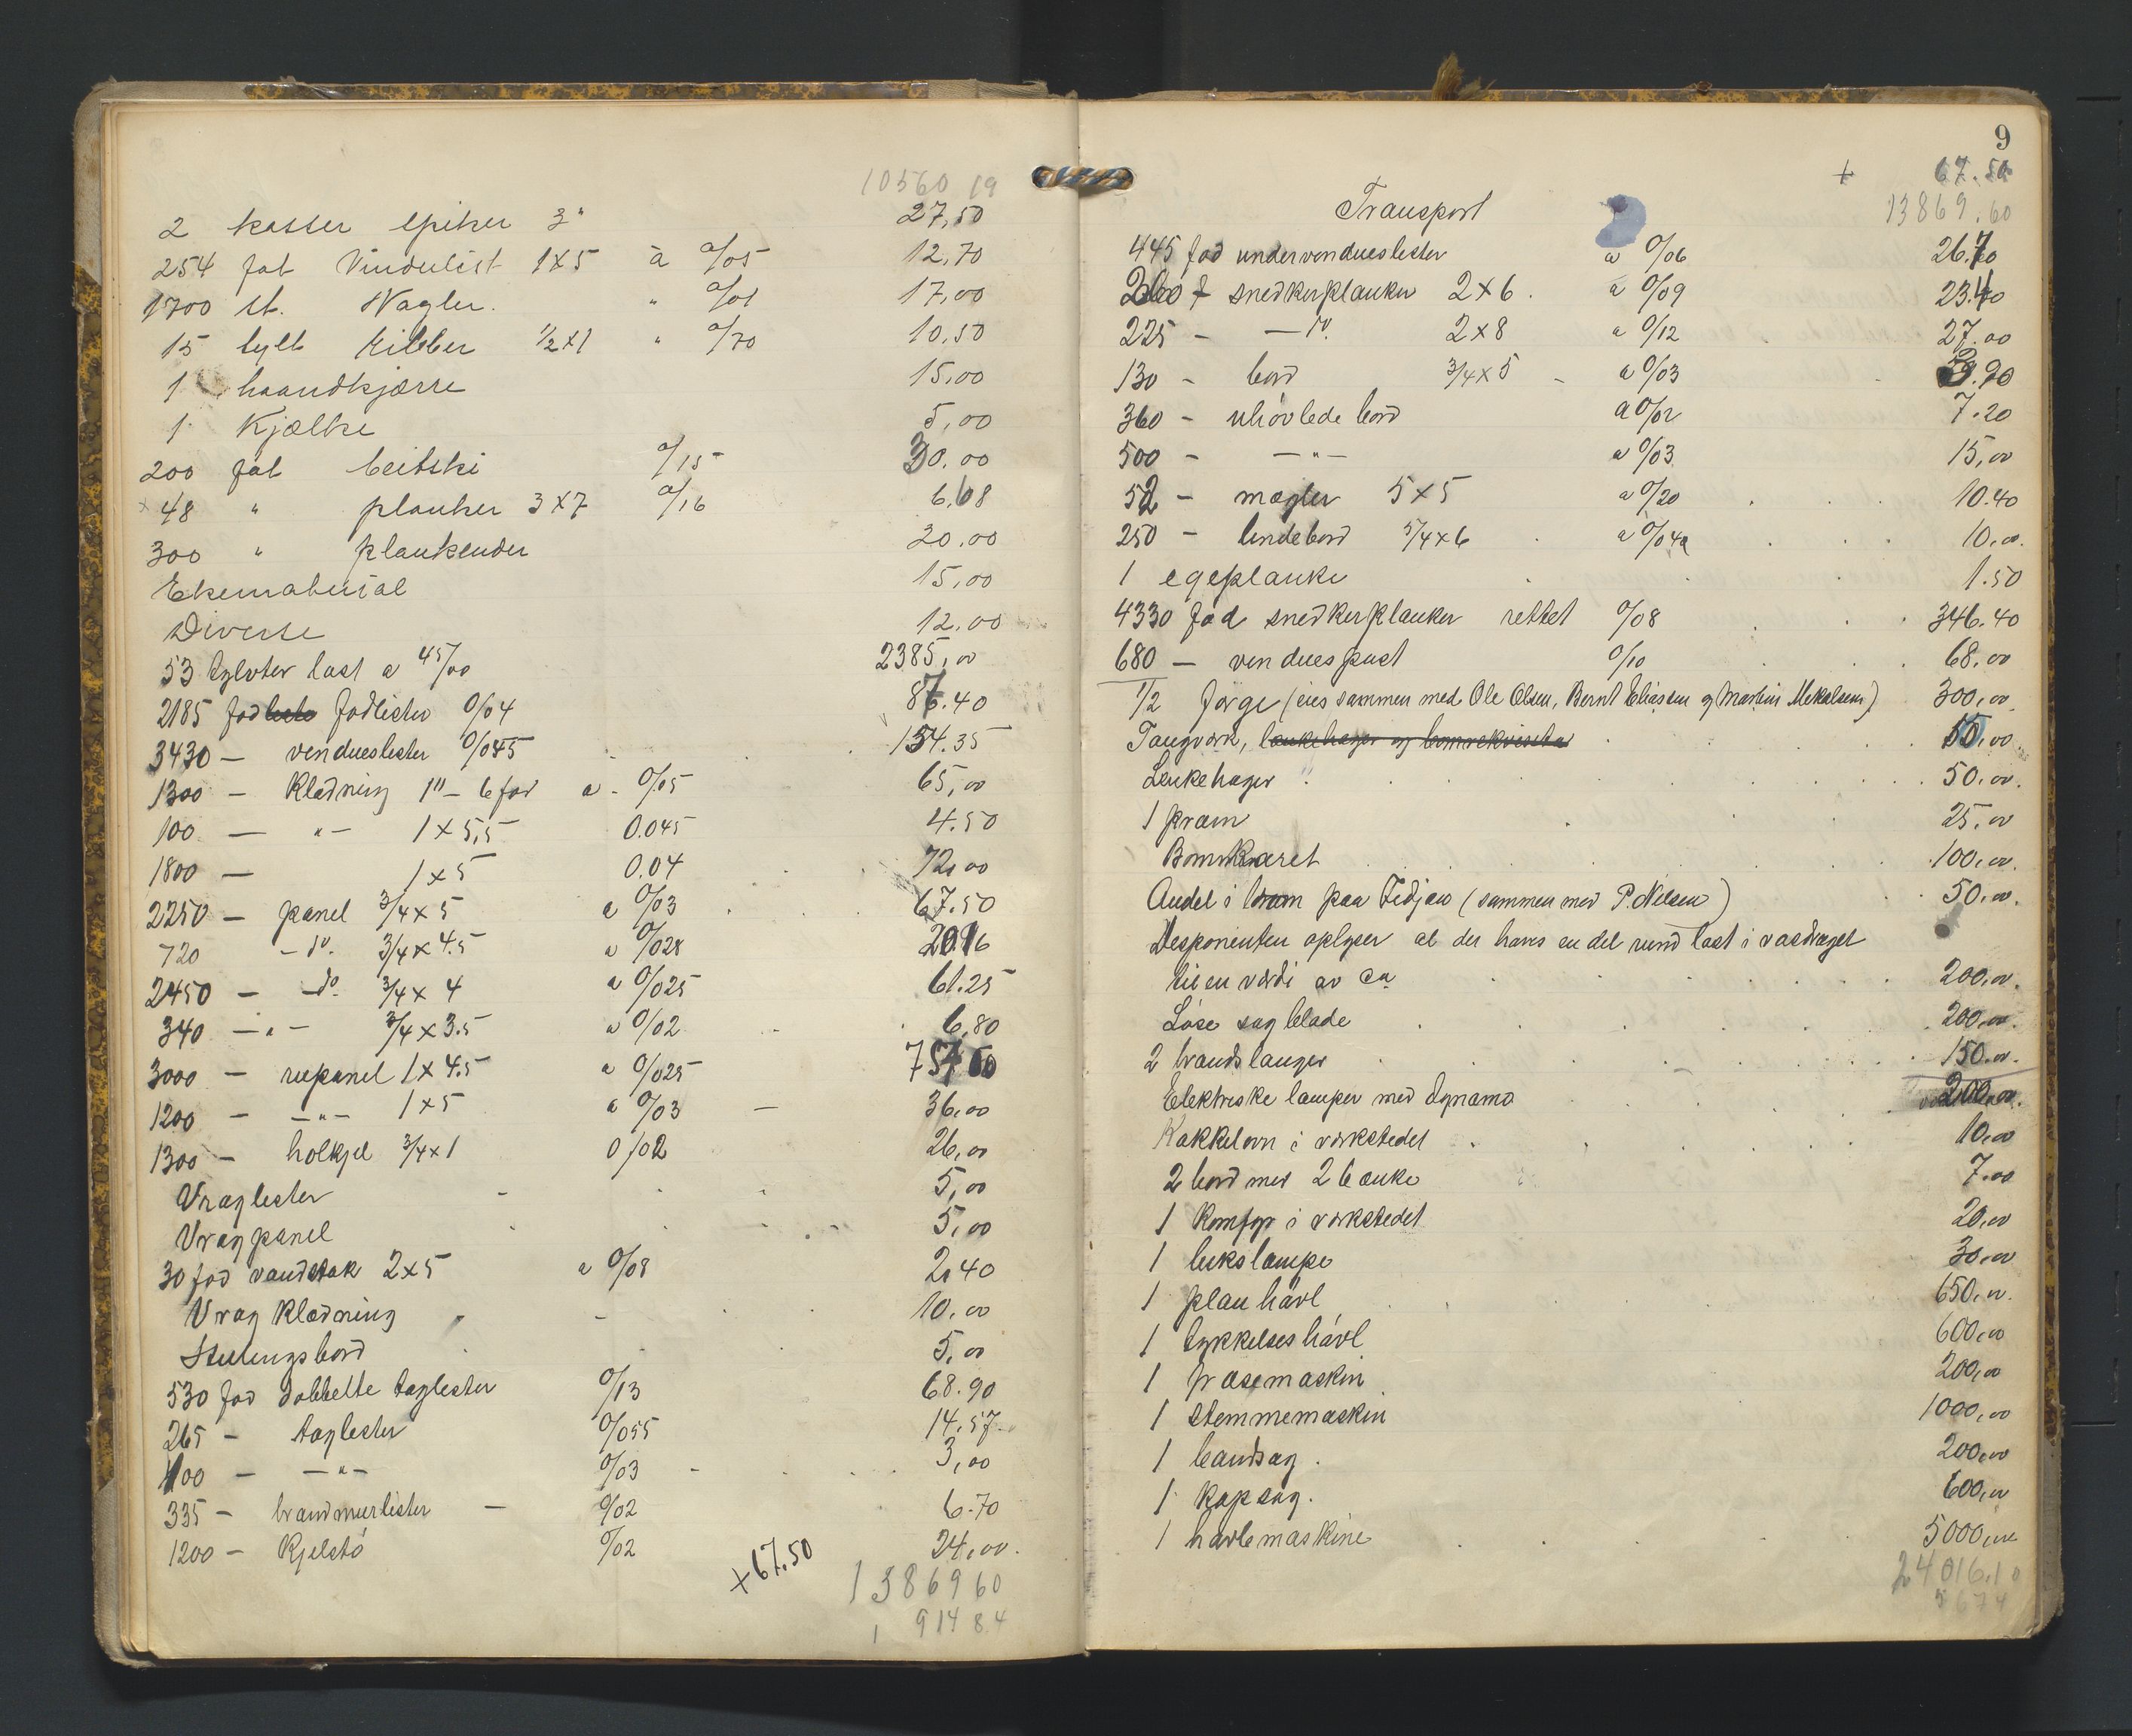 10560 19
2 kasser spiker 3" 27,50
254 fot Vinduelist 1x5 à 0/05 12,70
1700 st. Nagler. " 0/01 17,00
15 tylt Ribber 1/2x1 " 0/70 10,50
1 haandkjærre 15,00
1 Kjælke 5,00
200 fot beitski 0/15 30.00
48 " planker 3x7 0/16 6.68
300 " plankender 20.00
Ekematerial 15,00
Diverse 12.00
53 tylvter last a 45/00 2385,00
2185 fod fodlister 0/04 87.40
3430 — vendueslister 0/045 154.35
1300 — Klædning 1" - 6 fod a - 0/05 65,00
100 — " — 1 x 5,5 0.045 4.50
1800 — 1 x 5 0.04 72,00
2250 — panel 3/4 x 5 a 0/03 67.50
720 - do. 3/4 x 4.5 a 0/028 20.16
2450 — do. 3/4 x 4 a 0/025 61.25
340 — " — 3/4 x 3.5 a 0/02 6,80
3000 — rupanel 1 x 4.5 a 0/025 75
1200 — " — 1 x 5 a 0/03 36,00
1300 — holkjel 3/4 x 1 0/02 26,00
Vraglister 5,00
Vragpanel 5,00
30 fod vandstok 2x5 a 0/08 2,40
Vrag Klædning 10,00
Stillingsbord 5,00
530 fod dobbelte taglister 0/13 68.90
265 — taglister 0/055 14.57
100 — " — 0/03 3,00
335 — brandmurlister 0/02 6.70
1200 — Kjelstö 0/02 24,00.
+ 67.50
13869 60
1 914 84
9
+ 67.50
Transport 13869.60
445 fod undervendueslister a 0/06 26.70
260 f snedkerplanker 2x6. a 0/09 23.40
225 — do. 2x8 a 0/12 27.00
130 - bord 3/4x5 - a 0/03 3.90
360 - uhövlede bord a 0/02 7.20
500 — " — a 0/03 15,00
52 - mægler 5x5 a 0/20 10.40
250 — lindebord 5/4x6 a 0/04 10,00.
1 egeplanke 1.50
4330 fod snedkerplanker rettet 0/08 346.40
680 — venduespost 0/10 68.00
1/2 förge (eies sammen med Ole Olsen, Bernt Eliassen og Martin Mikalsen) 300,00
Taugverk, lænkehager og bomrekvisita 15,00
Lenkehager 50.00.
1 pram 25.00
Bomkaret 100,00.
Andel i bom paa Fidjau (sammen med P. Nilsen) 50.00.
Desponenten oplyser at der haves en del rund last i vasdraget
til en værdi av ca 200,00.
Löse sagblade 200,00.
2 brandslanger 150.00.
Elektriske lamper med dynamo 200,00.
Kakkelovn i verkstedet 10,00
2 bord med 2 bænke 7.00
1 Komfyr i verkstedet 20,00
1 lukslampe 30,00
1 planhövl 650,00.
1 tykkelseshövl 600,00
1 fræsemaskin 200,00
1 stemmemaskin 1000,00
1 bandsag. 200,00
1 kapsag. 600,00
1 hövlemaskine 5000,00
24016.10